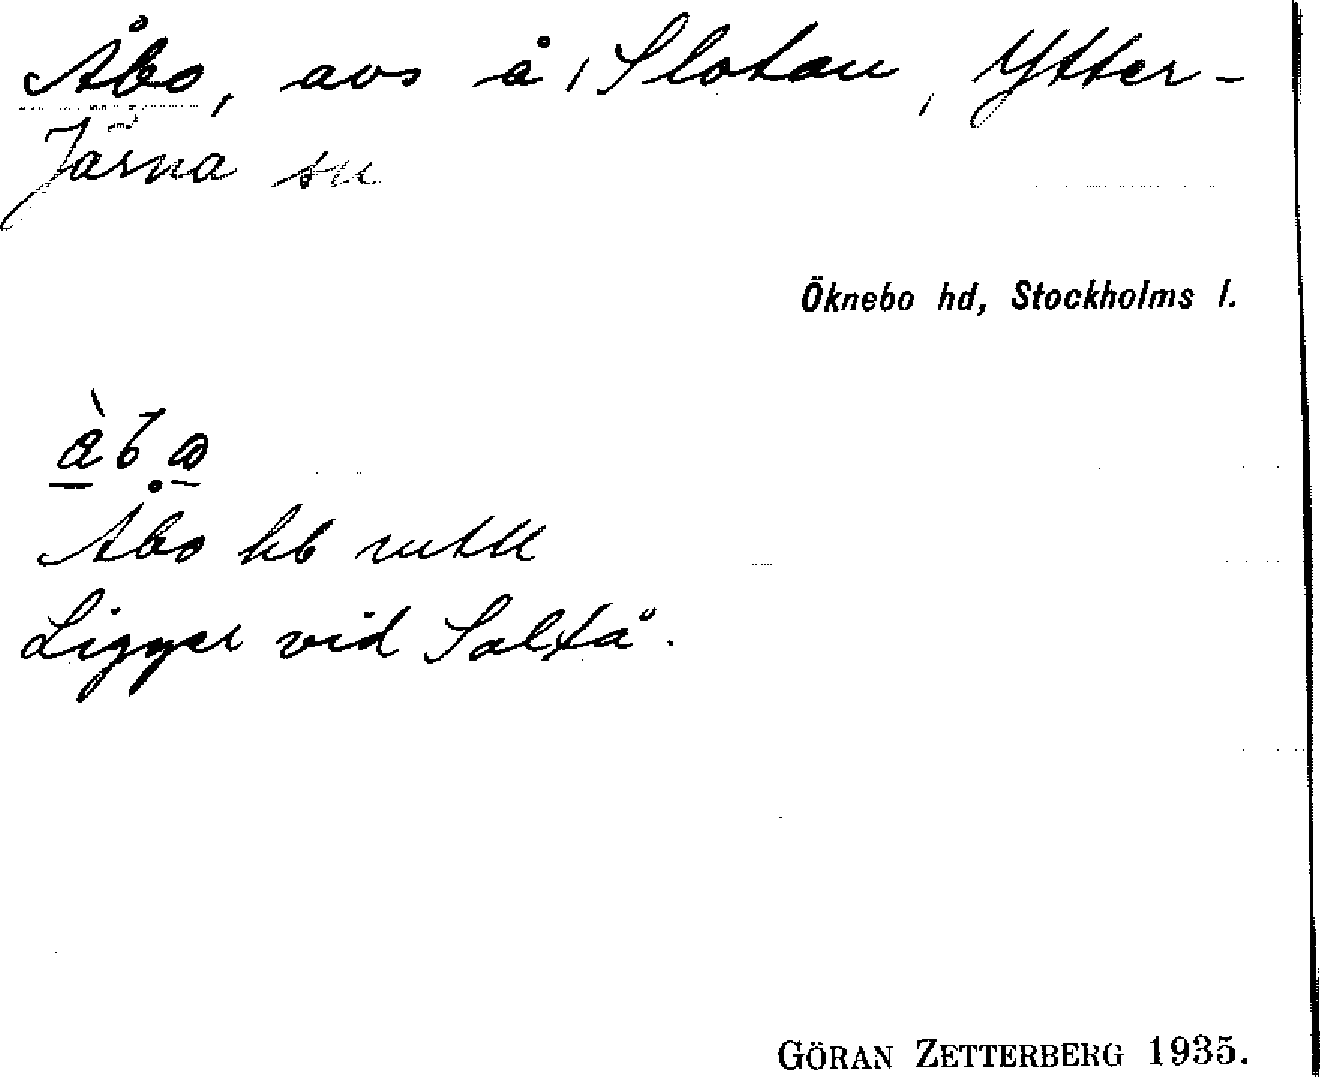 Åbo, avs å Slotan, Ytter-
Järna sn
Öknebo hd, Stockholms l.
Åbo hb
Ligger vid Saltå.
GÖRAN ZETTERBERG 1935.